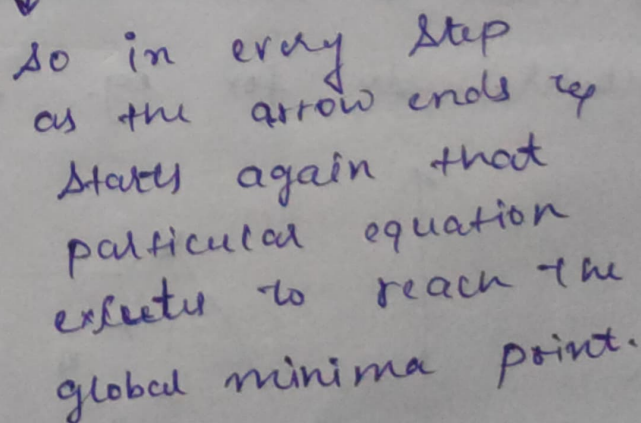 so in every step
as the arrow ends
starts again that
particular equation
to reach the
global minima point.